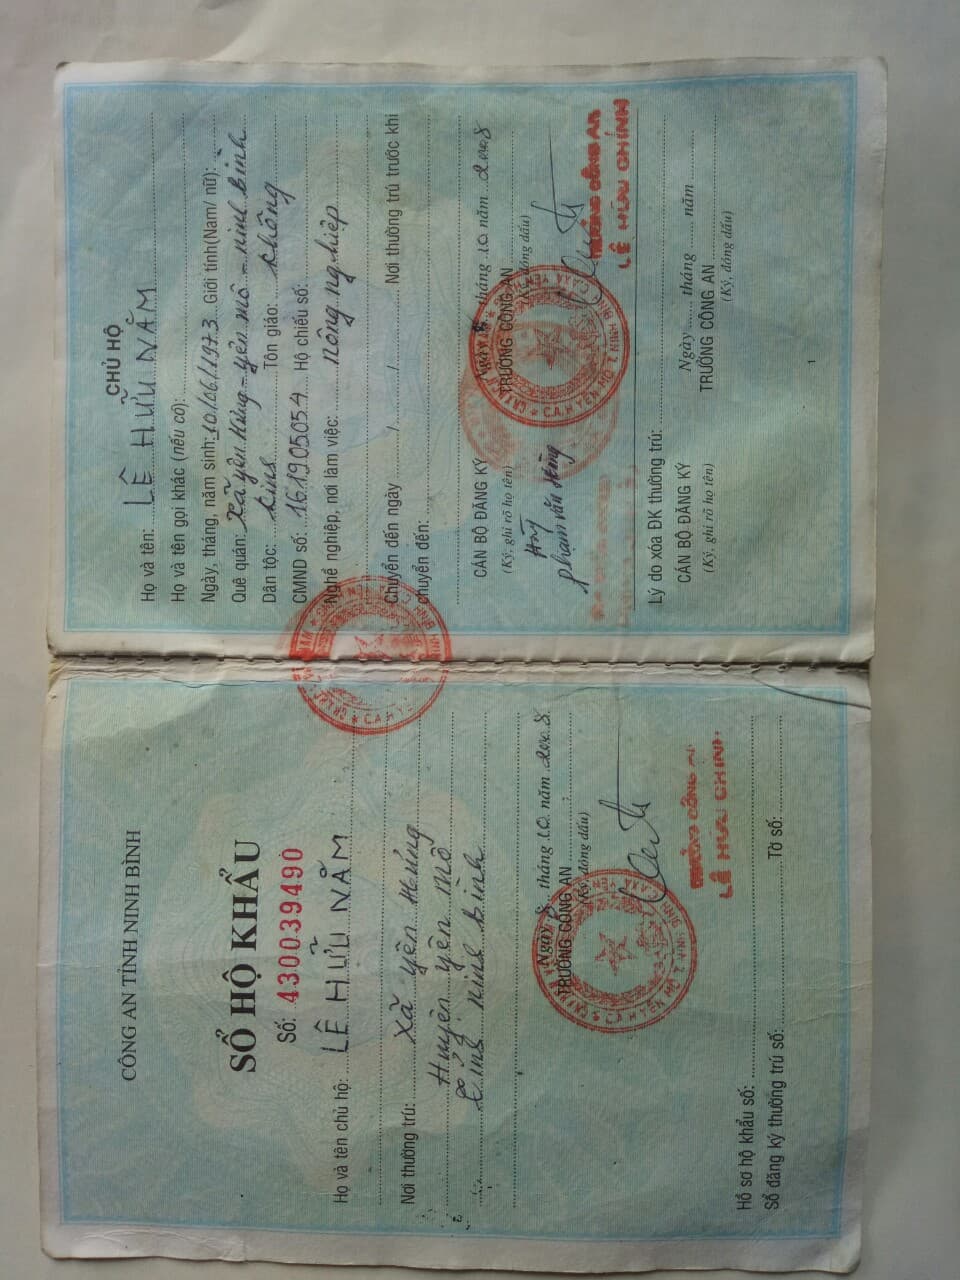 CÔNG AN TỈNH NINH BÌNH
SỔ HỘ KHẨU
Số: 430039490
Họ và tên chủ hộ: LÊ HỮU NĂM
Nơi thường trú: Xã yên Hưng
Huyện yên mô
tỉnh ninh bình
Ngày 8 tháng 10 năm 2008
TRƯỞNG CÔNG AN
(Ký, đóng dấu)
TRƯỞNG CÔNG AN
LÊ HỮU CHÍNH
Hồ sơ hộ khẩu số:
Sổ đăng ký thường trú số: Tờ số:
CHỦ HỘ
Họ và tên: LÊ HỮU NĂM
Họ và tên gọi khác (nếu có):
Ngày, tháng, năm sinh: 10/06/1973 Giới tính(Nam/ nữ):
Quê quán: Xã yên Hưng - yên mô - ninh bình
Dân tộc: kinh Tôn giáo: không
CMND số: 161905054 Hộ chiếu số:
Nghề nghiệp, nơi làm việc: nông nghiệp
Chuyển đến ngày / / Nơi thường trú trước khi
chuyển đến:
Ngày 8 tháng 10 năm 2008
CÁN BỘ ĐĂNG KÝ TRƯỞNG CÔNG AN
(Ký, ghi rõ họ tên) (Ký, đóng dấu)
phạm văn Hùng
TRƯỞNG CÔNG AN
LÊ HỮU CHÍNH
Lý do xóa ĐK thường trú:
Ngày tháng năm
CÁN BỘ ĐĂNG KÝ TRƯỞNG CÔNG AN
(Ký, ghi rõ họ tên) (Ký, đóng dấu)
1